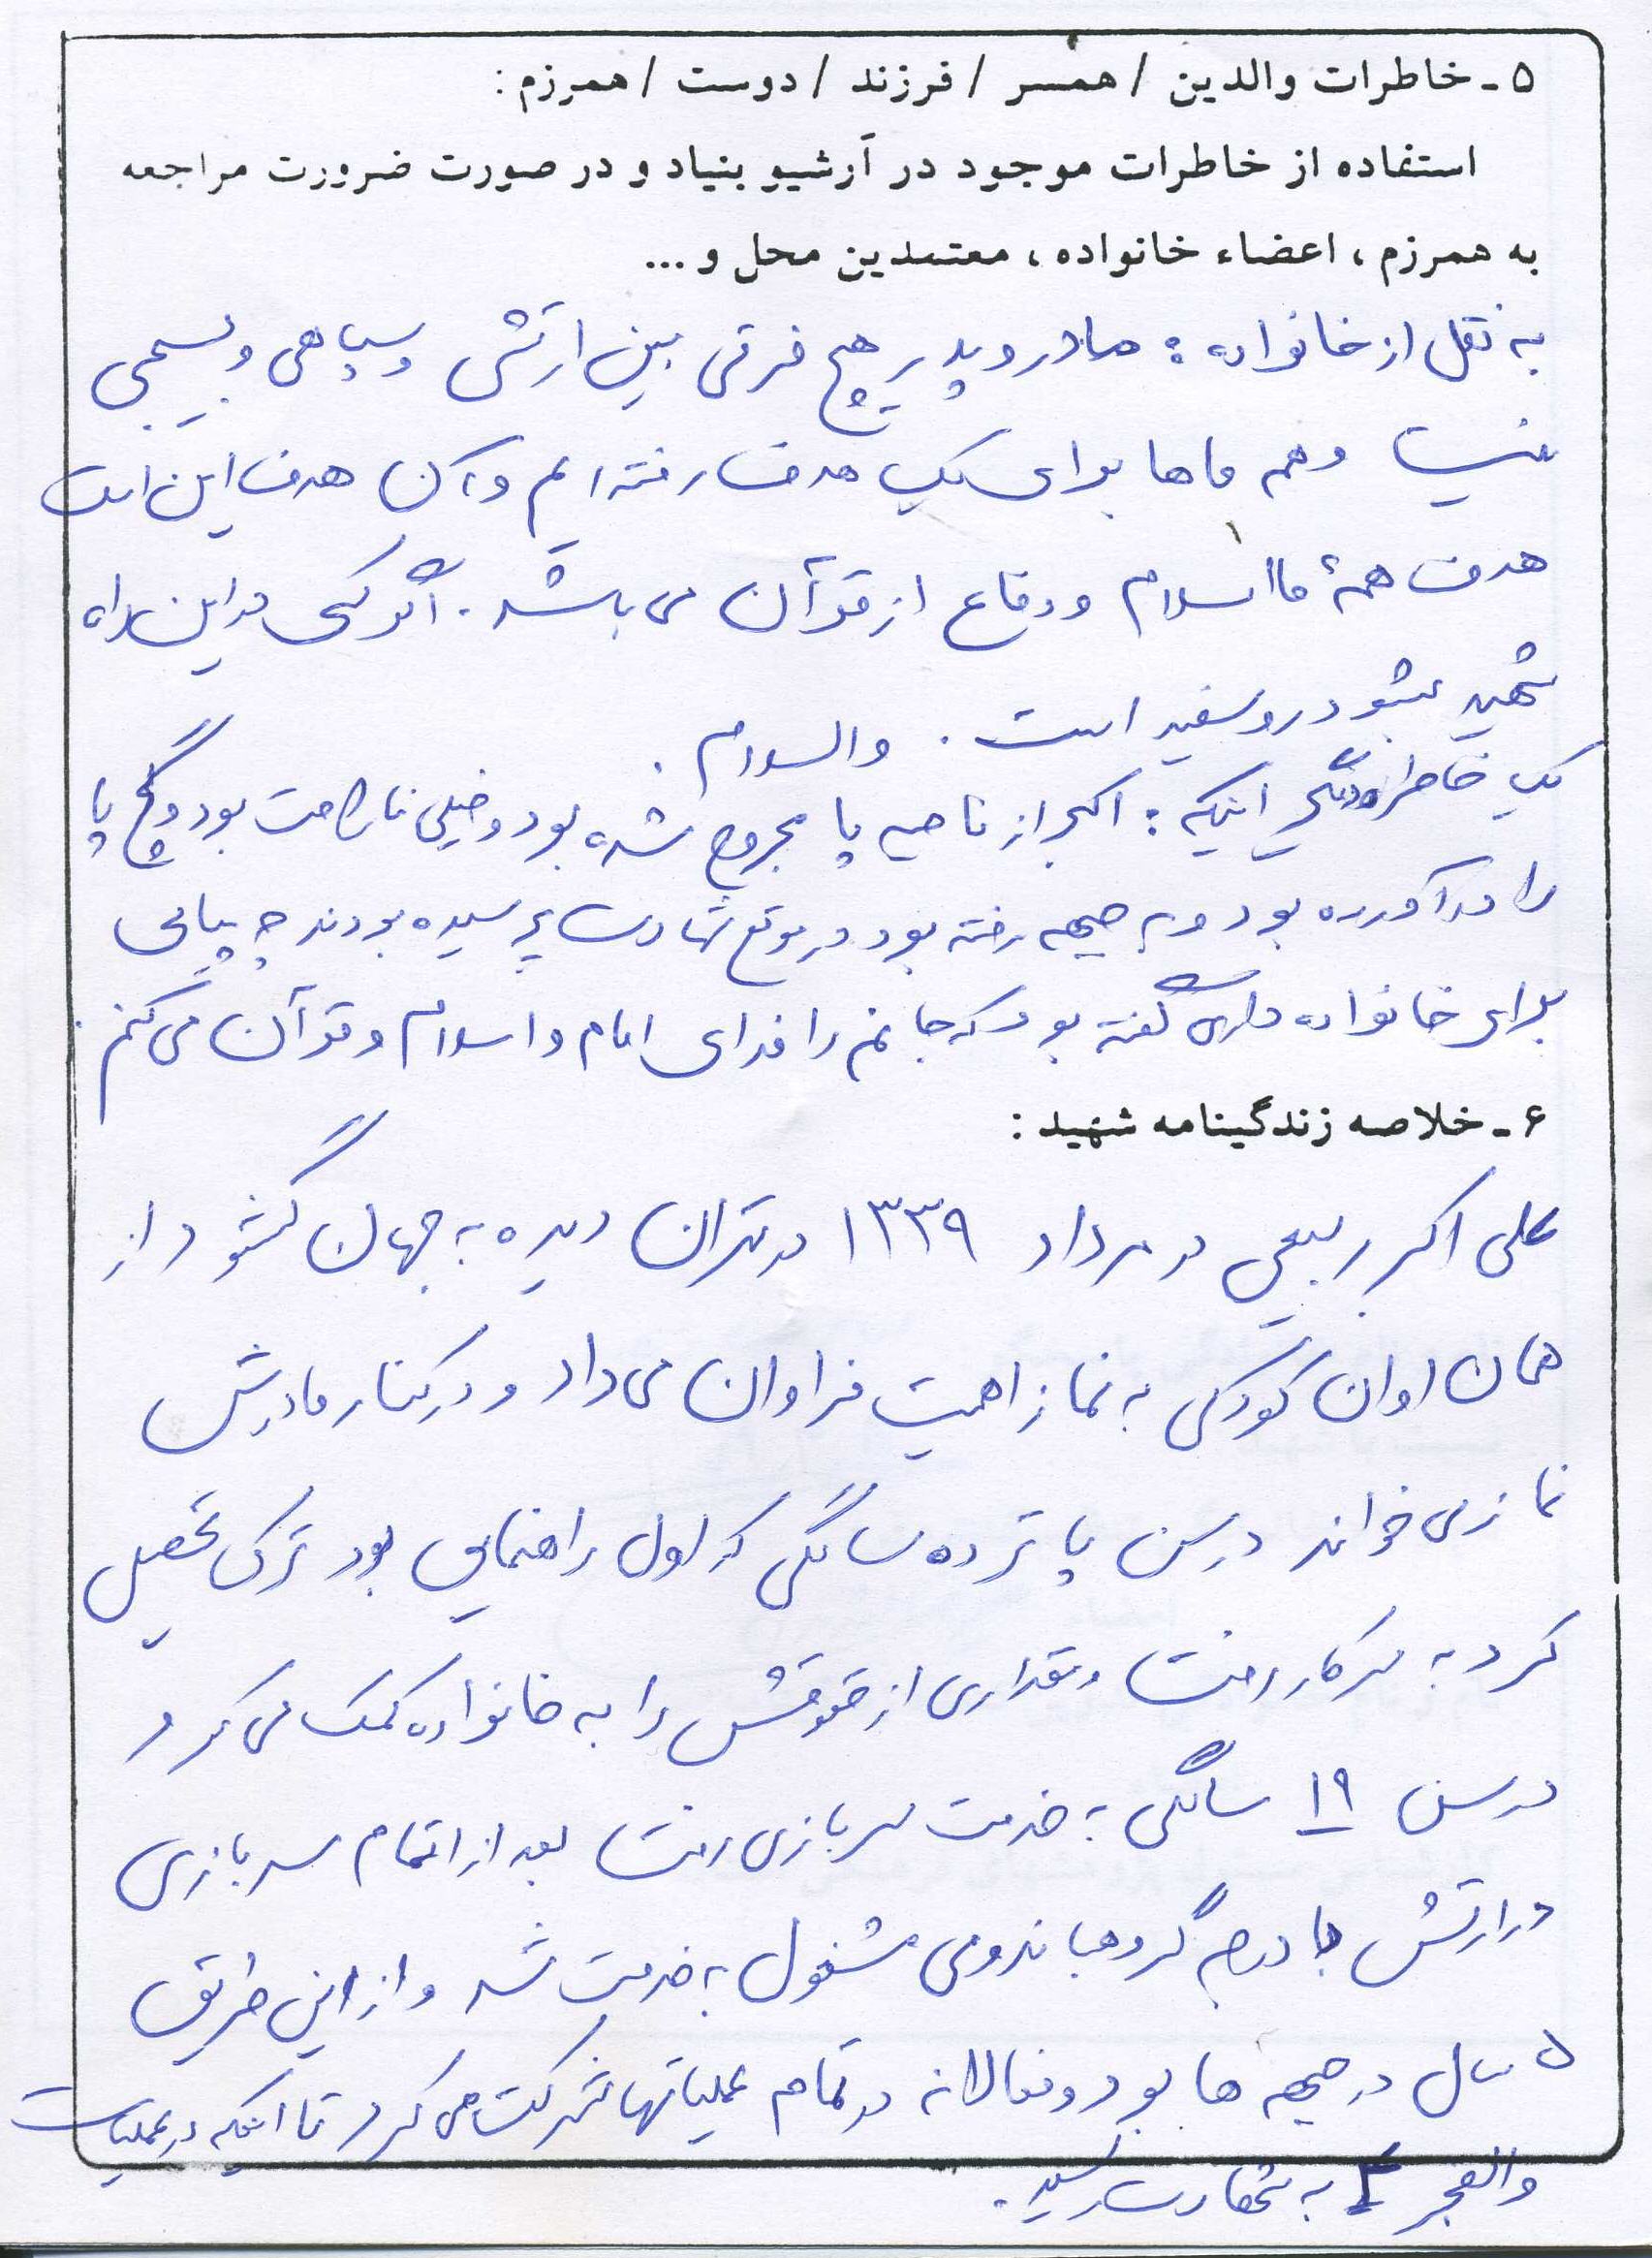 ۵ - خاطرات والدین / همسر / فرزند / دوست / همرزم :
استفاده از خاطرات موجود در آرشیو بنیاد و در صورت ضرورت مراجعه
به همرزم ، اعضاء خانواده ، معتمدین محل و ...
به نقل از خانواده : مادر و پدر هیچ فرقی بین ارتش و سپاهی و بسیجی
نیست و همه ماها برای یک هدف رفته ایم و آن هدف این است
هدف همهٔ ما اسلام و دفاع از قرآن می باشد . اگر کسی در این راه
شهید بشود روسفید است . والسلام .
یک خاطره دیگر اینکه : اکبر از ناحیه پا مجروح شده بود و خیلی ناراحت بود و گچ پا
را درآورده بود و به جبهه رفته بود در موقع شهادت پرسیده بودند چه پیامی
برای خانواده داری گفته بود که جانم را فدای امام و اسلام و قرآن می کنم .
۶ - خلاصه زندگینامه شهید :
علی اکبر ربیعی در مرداد ۱۳۳۹ در تهران دیده به جهان گشود از
همان اوان کودکی به نماز اهمیت فراوان می داد و در کنار مادرش
نماز می خواند در سن پانزده سالگی که اول راهنمایی بود ترک تحصیل
کرد به سر کار رفت و مقداری از حقوقش را به خانواده کمک می کرد و
در سن ۱۹ سالگی به خدمت سربازی رفت بعد از اتمام سربازی
در ارتش با درجه گروهباندومی مشغول به خدمت شد و از این طریق
۵ سال در جبهه ها بود و فعالانه در تمام عملیاتها شرکت می کرد تا اینکه در عملیات
والفجر به شهادت رسید .